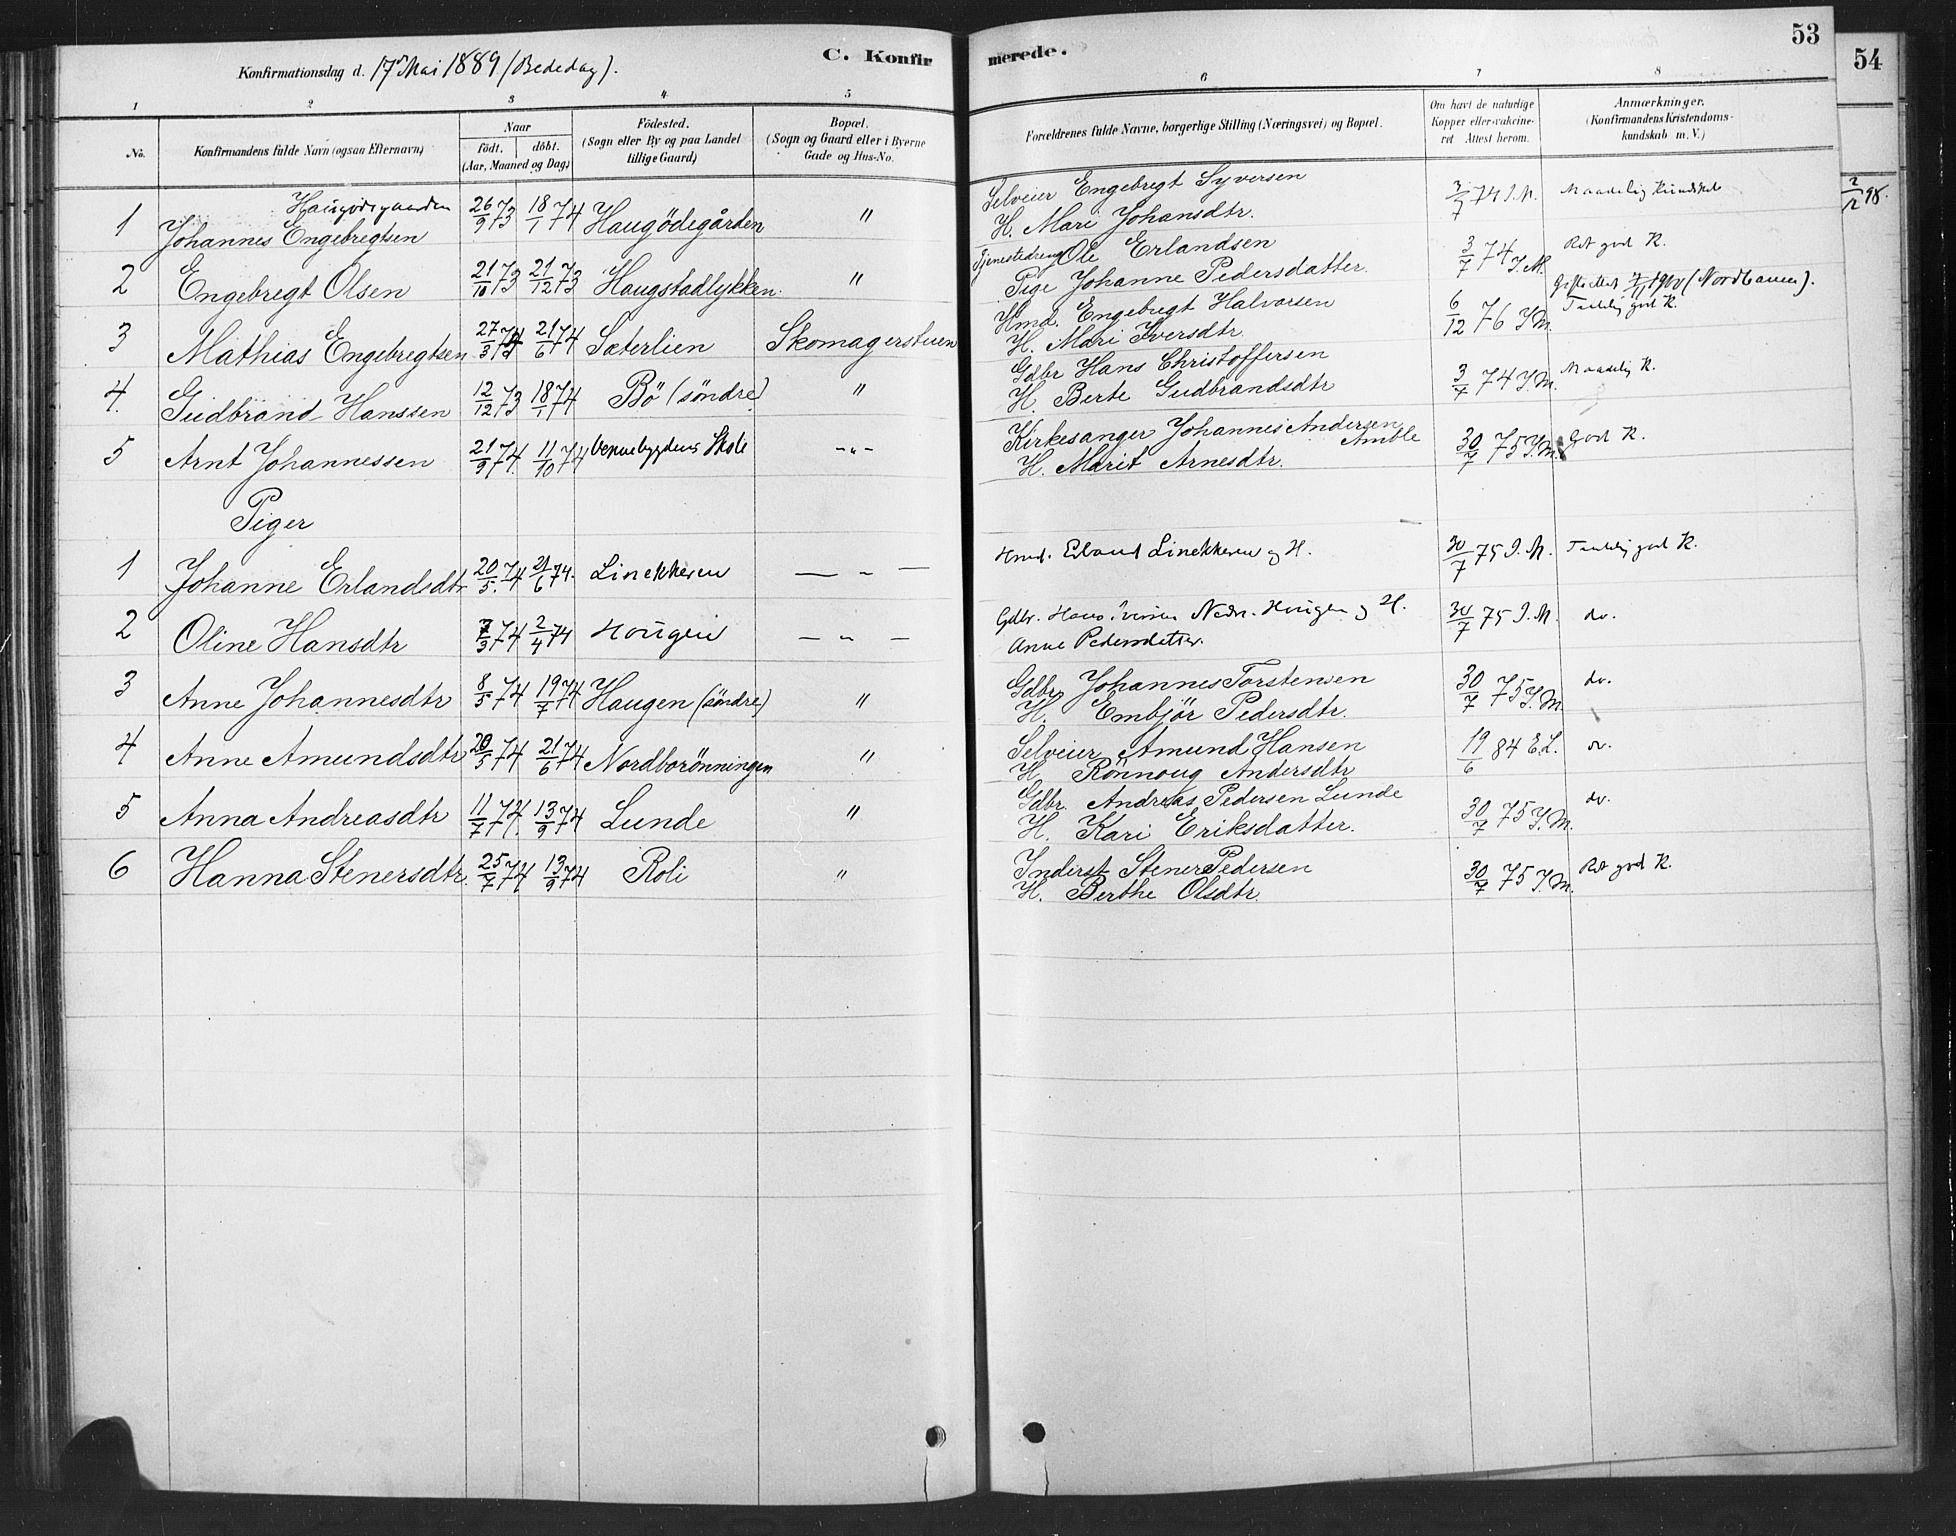 C. Konfirmerede.
53
54
Konfirmationsdag d. 17de Mai 1889 (Bededag).
1 2 3 4 5 6 7 8
No.
Konfirmandens fulde Navn (ogsaa Efternavn)
Naar
födt. döbt.
(Aar, Maaned og Dag)
Födested.
(Sogn eller By og paa Landet
tillige Gaard)
Bopæl.
(Sogn og Gaard eller i Byerne
Gade og Hus-No.
Forældrenes fulde Navne, borgerlige Stilling (Næringsvei) og Bopæl.
Om havt de naturlige
Kopper eller vakcineret
Attest herom.
Anmærkninger.
(Konfirmandens Kristendomskundskab
m. V.)
Haugödegaarden
1 Johannes Engebregtsen 26/9 73 18/1 74 Haugödegården " Selveier Engebregt Syversen 3/7 74 I.M. Maadelig Kundskab
H. Mari Johansdtr.
2 Engebregt Olsen 21/10 73 21/12 73 Haugstadlykken " Tjenestedreng Ole Erlandsen 3/7 74 I.M. Ret god K.
Pige Johanne Pedersdatter. Gift 1900 (Nordbanen).
3 Mathias Engebregtsen 27/3 74 21/6 74 Sæterlien Skomagerstuen Hmd. Engebregt Halvorsen 6/12 76 I.M. Temmelig god K.
H. Mari Iversdtr.
4. Gudbrand Hanssen 12/12 73 18/1 74 Bö (söndre) " Gdbr Hans Christoffersen 3/7 74 I.M. Maadelig K.
H. Berte Gudbrandsdtr
5 Arnt Johannessen 21/9 74 11/10 74 Skole -"- Kirkesanger Johannes Andersen Amble 30/7 75 I.M. God K.
H. Marit Arnesdtr.
Piger
1 Johanne Erlandsdtr 20/5 74 21/6 74. Linekkeren — " — Hmd. Erland Linekkeren og H. 30/7 75 I.M. Temmelig god K.
2 Oline Hansdtr 7/3 74 2/4 74 Hougen — " — Gdbr. Hans Iversen Nedre Hougen og H. 30/7 75 I.M. do.
Anne Pedersdatter.
3 Anne Johannesdtr 8/5 74 19/7 74 Haugen (söndre) " Gdbr Johannes Torstensen 30/7 75 I.M. do.
H. Embjör Pedersdtr.
4 Anne Amundsdtr 20/5 74 21/6 74 Nordborönningen " Selveier Amund Hansen 19/6 84 E.L. do.
H. Rönnoug Andersdtr
5 Anna Andreasdtr 11/7 74 13/9 74 Lunde " Gdbr. Andreas Pedersen Lunde 30/7 75 I.M. do.
H. Kari Eriksdatter.
6 Hanna Stenersdtr. 25/7 74 13/9 74 Roli " Inderst Stener Pedersen 30/7 75 I.M. Ret god K.
H. Berthe Olsdtr.